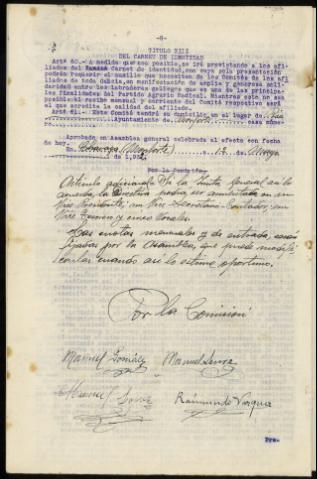 - 8 -
TITULO XIII
DEL CARNET DE IDENTIDAD
Artº 40.- A medida que sea posible, se irá proveyendo a los afi-
liados del Carnet de identidad, con cuya sola presentación
podrán requerir el auxilio que necesiten de los Comités de los afi-
liados de toda Galicia, en manifestación de amplia y generosa soli-
daridad entre los labradores gallegos que es una de las principa-
les finalidades del Partido Agrario Radical. Mientras esto no sea
posible el recibo mensual y corriente del Comité respectivo será
el que acredite la calidad de afiliado.
Artº 41.- Este Comité tendrá su domicilio en el lugar de
Ayuntamiento de Monforte casa núme-
ro
Aprobado en Asamblea general celebrada al efecto con fecha
de hoy.
(Monforte) a 12 de
de 1.93
Por la Comisión,
Artículo adicional= Si la Junta General así lo
acuerda, la Directiva podrá ser aumentada en un
Vice Presidente, un Vice Secretario Contador, un
Vice Tesorero y cinco Vocales.
Las cuotas mensuales y de entrada, serán
fijadas por la Asamblea, que puede modifi-
carlas cuando así lo estime oportuno.
Por la Comisión
Manuel González Manuel
Manuel Raimundo Vazquez
Pre-